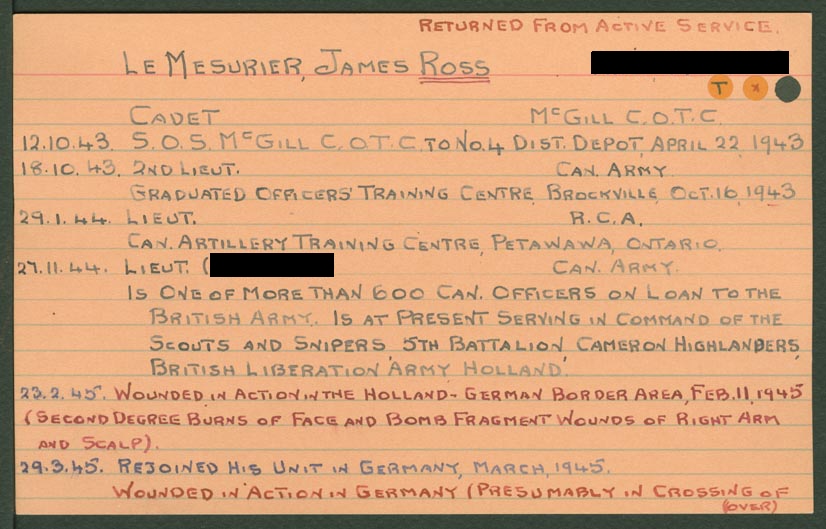 RETURNED FROM ACTIVE SERVICE.
LE MESURIER, JAMES ROSS
T x
CADET McGILL C.O.T.C.
12.10.43. S.O.S. McGILL C.O.T.C. TO No.4 DIST. DEPOT, APRIL 22, 1943
18.10.43. 2ND LIEUT. CAN. ARMY
GRADUATED OFFICERS' TRAINING CENTRE, BROCKVILLE, OCT.16, 1943
29.1.44. LIEUT. R.C.A.
CAN. ARTILLERY TRAINING CENTRE, PETAWAWA, ONTARIO.
27.11.44. LIEUT. ( CAN. ARMY.
IS ONE OF MORE THAN 600 CAN. OFFICERS ON LOAN TO THE
BRITISH ARMY. IS AT PRESENT SERVING IN COMMAND OF THE
SCOUTS AND SNIPERS, 5TH BATTALION, CAMERON HIGHLANDERS,
BRITISH LIBERATION ARMY HOLLAND.
23.2.45. WOUNDED IN ACTION IN THE HOLLAND-GERMAN BORDER AREA, FEB.11, 1945
(SECOND DEGREE BURNS OF FACE AND BOMB FRAGMENT WOUNDS OF RIGHT ARM
AND SCALP).
29.3.45. REJOINED HIS UNIT IN GERMANY, MARCH, 1945.
WOUNDED IN ACTION IN GERMANY (PRESUMABLY IN CROSSING OF
(OVER)